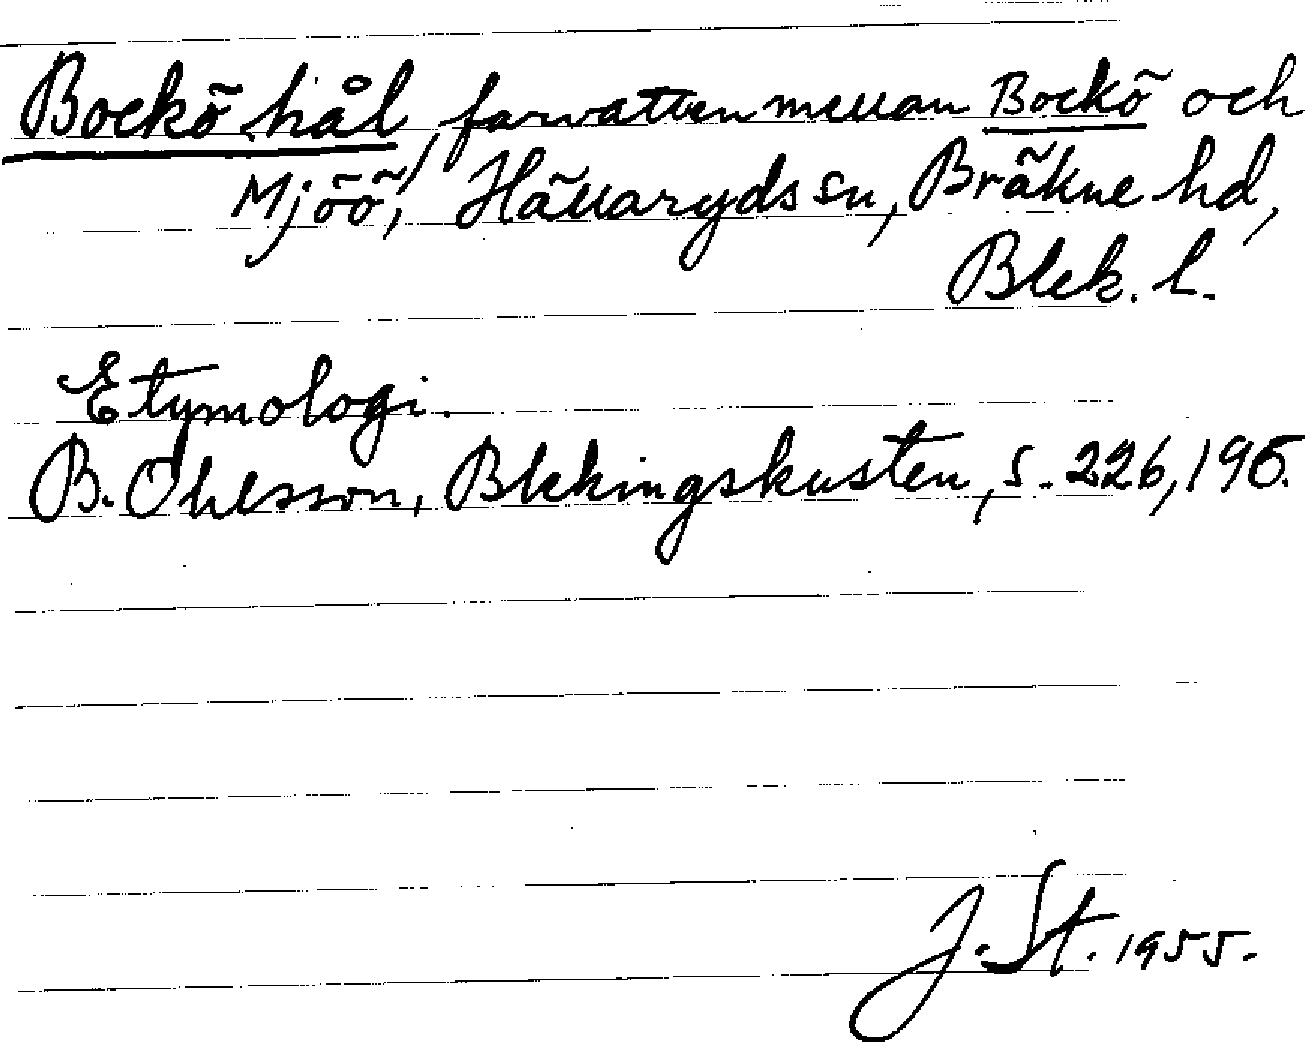 Bockö hål, farvatten mellan Bockö och
Mjöö, Hällaryds sn, Bräkne hd,
Blek. l.
Etymologi.
B. Ohlsson, Blekingskusten, s. 226, 196.
J. St. 1955.